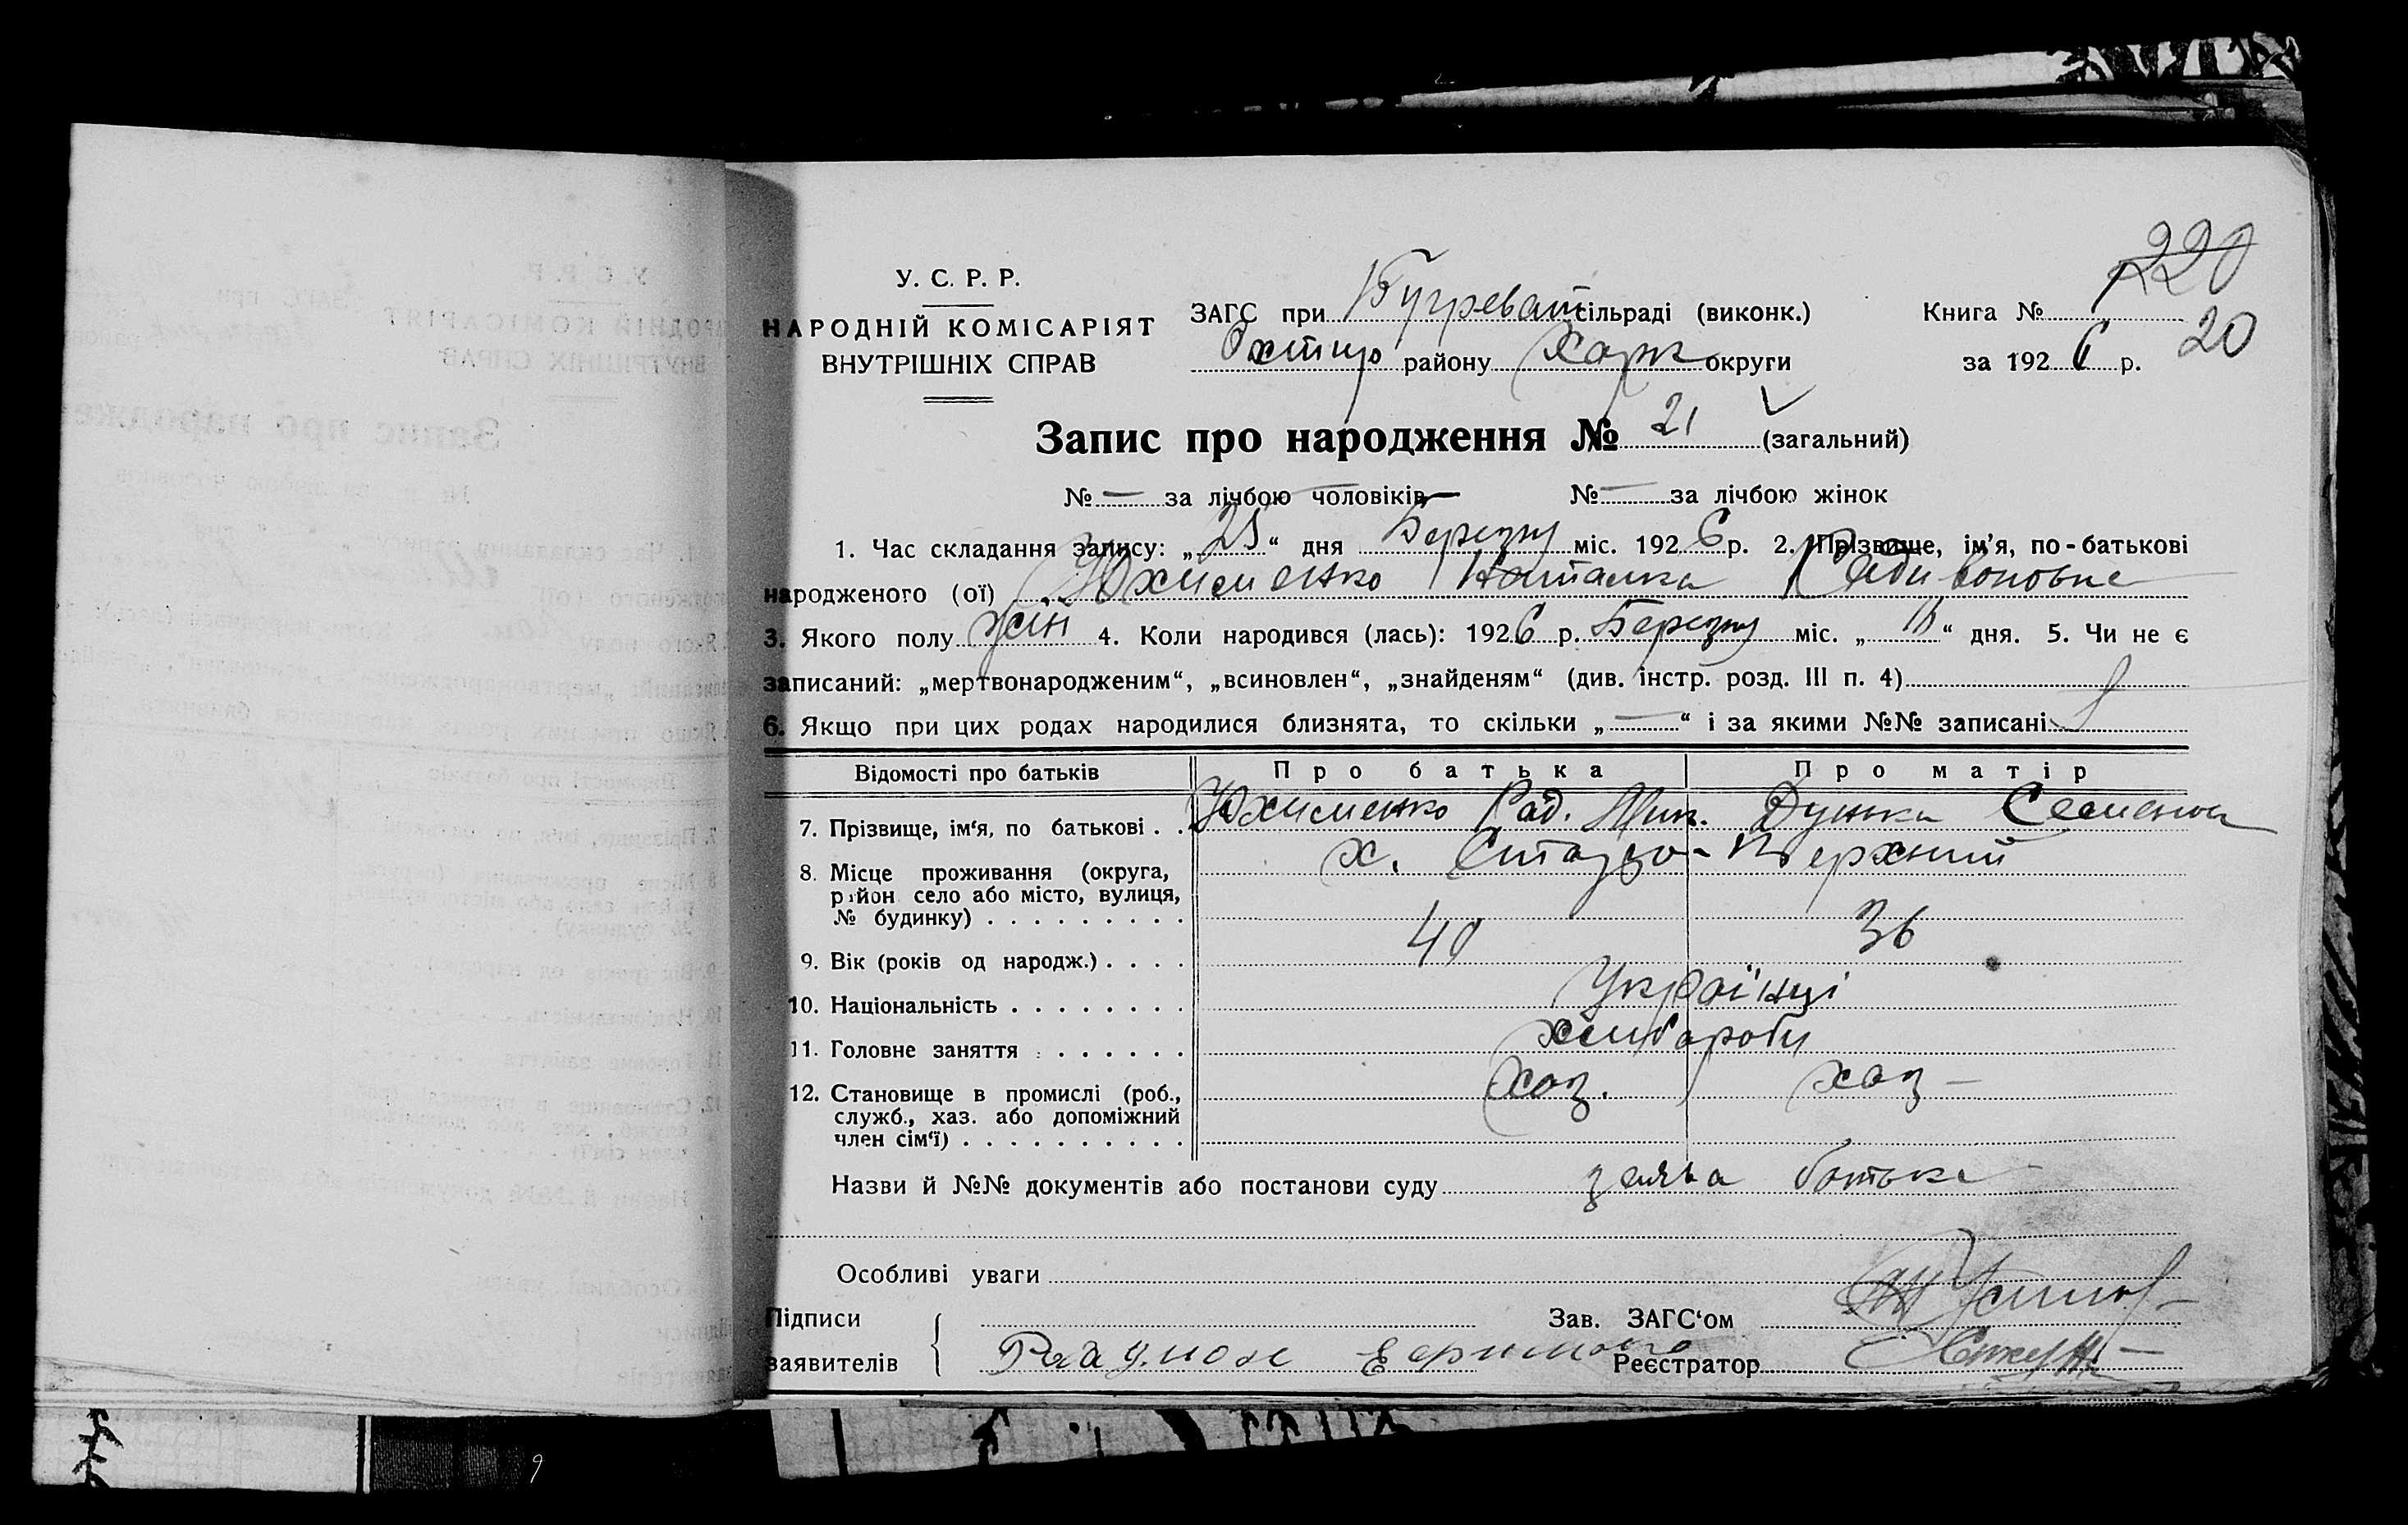 220
У. С. Р. Р.
НАРОДНІЙ КОМІСАРІЯТ
ВНУТРІШНІХ СПРАВ
ЗАГС при Бугреват сільраді (виконк.)
Книга №
20
Охтир району Харк округи
за 1926 р.
Запис про народження № 21 (загальний)
№ — за лічбою чоловіків — № — за лічбою жінок
1. Час складання запису: „25“ дня Березня міс. 1926 р. 2. Прізвище, ім'я, по-батькові
народженого (ої) Юхименко Наталка Радивоновна
3. Якого полу жін 4. Коли народився (лась): 1926 р. Березня міс. „ “ дня. 5. Чи не є
записаний: „мертвонародженим“, „всиновлен“, „знайденям“ (див. інстр. розд. III п. 4)
6. Якщо при цих родах народилися близнята, то скільки „—“ і за якими №№ записані
Відомості про батьків Про батька Про матір
7. Прізвище, ім'я, по батькові . . Юхименко Рад. Мик. Дунька Семенов
8. Місце проживання (округа, район село або місто, вулиця, № будинку) . . . . . . . . . х. Верхний
9. Вік (років од народж.) . . . . 40 36
10. Національність . . . . . . . . Українці
11. Головне заняття . . . . . . . хлібароби
12. Становище в промислі (роб., служб., хаз. або допоміжний член сім'ї) . . . . . . . . . . хаз. хаз —
Назви й №№ документів або постанови суду заява батька
Особливі уваги
Підписи
заявителів
Зав. ЗАГС'ом
Реєстратор
9